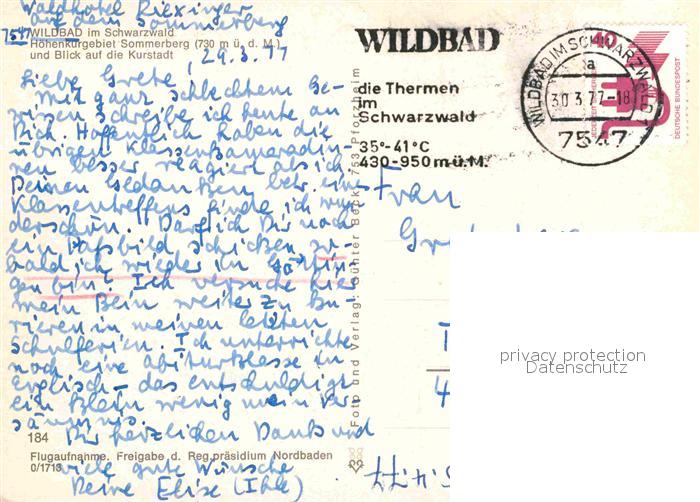 Waldhotel Riexinger
auf dem Sommerberg
7547 WILDBAD im Schwarzwald
Höhenkurgebiet Sommerberg (730 m ü. d. M.)
und Blick auf die Kurstadt
, 29.3.77
Liebe Grete,
Mit ganz schlechtem Ge-
wissen schreibe ich heute an
Dich. Hoffentlich haben die
übrigen Klassenkameradin-
nen besser reagiert als ich.
Deinen Gedanken betr. eines
Klassentreffens finde ich wun-
derschön. Darf ich Dir noch
ein Paßbild schicken, so-
bald ich wieder in Göttin-
gen bin. Ich versuche hier
mein Bein weiter zu ku-
rieren in meinen letzten
Schulferien. Ich unterrichte
noch eine Abiturklasse in
Englisch – das entschuldigt
ein klein wenig mein Ver-
säumnis.
Dir herzlichen Dank und
184
Flugaufnahme. Freigabe d. Reg.präsidium Nordbaden
0/1713
viele gute Wünsche
Deine Elise (Ihle)
Foto und Verlag: Günter Beck, 753 Pforzheim
WILDBAD
die Thermen
im
Schwarzwald
35°-41°C
430-950 m ü. M.
WILDBAD IM SCHWARZWALD
a
30.3.77-18
7547
40
DEUTSCHE BUNDESPOST
Frau
privacy protection
Datenschutz